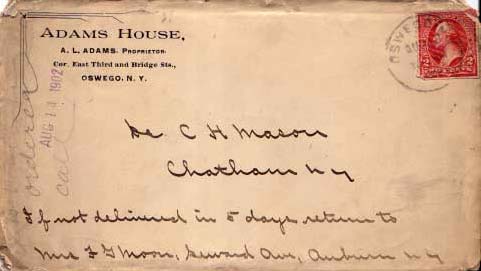 ADAMS HOUSE,
A. L. ADAMS, PROPRIETOR.
Cor. East Third and Bridge Sts.,
OSWEGO, N. Y.
OSWEGO
2 2
ordered
AUG 14 1902
C H Mason
Chatham N Y
If not delivered in 5 days return to
Mrs F G Moon, Seward Ave, Auburn N Y